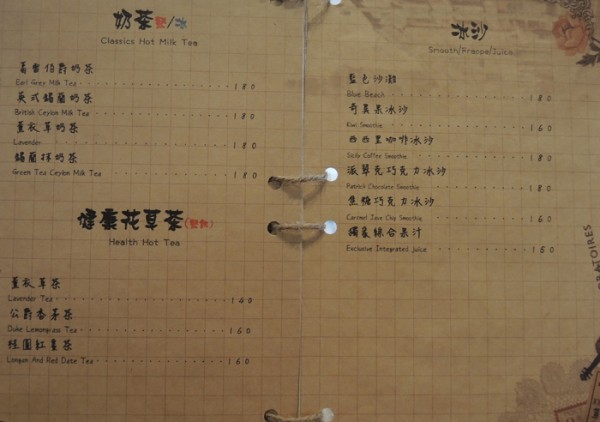 奶茶熱/冰
Classics Hot Milk Tea
高雪伯爵奶茶
Earl Grey Milk Tea 180
英式錫蘭奶茶
British Ceylon Milk Tea 180
薰衣草奶茶
Lavender 180
錫蘭抹奶茶
Green Tea Ceylon Milk Tea 180
健康花草茶(熱飲)
Health Hot Tea
薰衣草茶
Lavender Tea 140
公爵香茅茶
Duke Lemongrass Tea 160
桂圓紅棗茶
Longan And Red Date Tea 160
冰沙
Smooth/Frappe/Juice
藍色沙灘
Blue Beach 180
奇異果冰沙
Kiwi Smoothie 160
西西里咖啡冰沙
Sicily Coffee Smoothie 180
派翠克巧克力冰沙
Patrick Chocolate Smoothie 180
焦糖巧克力冰沙
Caramel Java Chip Smoothie 160
獨家綜合果汁
Exclusive Integrated Juice 150